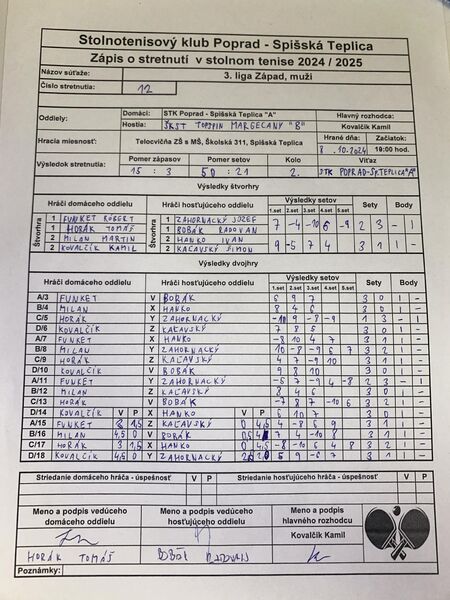 Stolnotenisový klub Poprad - Spišská Teplica
Zápis o stretnutí v stolnom tenise 2024 / 2025
Názov súťaže: 3. liga Západ, muži
Číslo stretnutia: 12
Oddiely: Domáci: STK Poprad - Spišská Teplica "A" Hlavný rozhodca:
Hostia: ŠKST TOPSPIN MARGECANY "B" Kovalčík Kamil
Hracia miesnosť: Telocvičňa ZŠ s MŠ, Školská 311, Spišská Teplica Hrané dňa: Začiatok:
8.10.2024 19:00 hod.
Výsledok stretnutia: Pomer zápasov Pomer setov Kolo Víťaz
15 : 3 50 : 21 2. STK POPRAD-SP.TEPLICA"A"
Výsledky štvorhry
Hráči domáceho oddielu Hráči hosťujúceho oddielu Výsledky setov Sety Body
1.set 2.set 3.set 4.set 5.set
Štvorhra 1 FUNKET RÓBERT Štvorhra 1 ZAHORNACKÝ JOZEF 7 -4 -10 6 -9 2 3 - 1
1 HORÁK TOMÁŠ 1 BOBÁK RADOVAN
2 MILAN MARTIN 2 HANKO IVAN 9 -5 7 4 3 1 1 -
2 KOVALČÍK KAMIL 2 KAĽAVSKÝ ŠIMON
Výsledky dvojhry
Hráči domáceho oddielu Hráči hosťujúceho oddielu Výsledky setov Sety Body
1.set 2.set 3.set 4.set 5.set
A/3 FUNKET V BOBÁK 6 9 7 3 0 1 -
B/4 MILAN X HANKO 8 4 6 3 0 1 -
C/5 HORÁK Y ZAHORNACKÝ -10 9 -8 -9 1 3 - 1
D/6 KOVALČÍK Z KAĽAVSKÝ 7 8 5 3 0 1 -
A/7 FUNKET X HANKO -8 10 4 7 3 1 1 -
B/8 MILAN Y ZAHORNACKÝ 10 -8 -9 6 7 3 2 1 -
C/9 HORÁK Z KAĽAVSKÝ 4 7 -9 10 3 1 1 -
D/10 KOVALČÍK V BOBÁK 9 8 10 3 0 1 -
A/11 FUNKET Y ZAHORNACKÝ -5 7 -9 4 -8 2 3 - 1
B/12 MILAN Z KAĽAVSKÝ 8 4 6 3 0 1 -
C/13 HORÁK V BOBÁK -7 8 7 -10 6 3 2 1 -
D/14 KOVALČÍK V P X HANKO V P 6 10 7 3 0 1 -
A/15 FUNKET 1,5 Z KAĽAVSKÝ 0 4,5 4 -8 6 9 3 1 1 -
B/16 MILAN 4,5 0 V BOBÁK 7 4 -10 8 3 1 1 -
C/17 HORÁK 3 1,5 X HANKO 0 4,5 -8 -10 6 4 8 3 2 1 -
D/18 KOVALČÍK 4,5 0 Y ZAHORNACKÝ 5 9 -6 7 3 1 1 -
Striedanie domáceho hráča - úspešnosť V P Striedanie hosťujúceho hráča - úspešnosť V P
Meno a podpis vedúceho domáceho oddielu Meno a podpis vedúceho hosťujúceho oddielu Meno a podpis hlavného rozhodcu
Kovalčík Kamil
HORÁK TOMÁŠ BOBÁK RADOVAN
Poznámky: